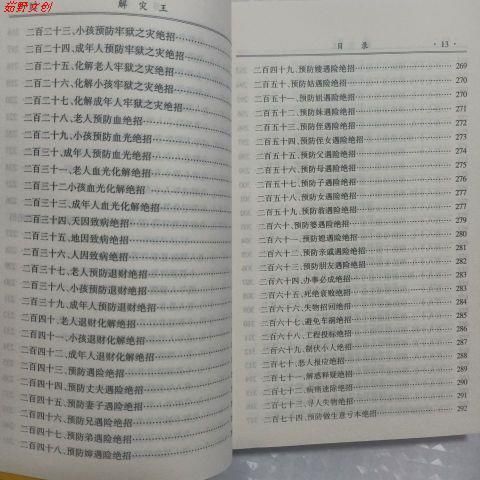 茹野文创
解灾王
二百二十三、小孩预防牢狱之灾绝招
二百二十四、成年人预防牢狱之灾绝招
二百二十五、化解老人牢狱之灾绝招
二百二十六、化解小孩牢狱之灾绝招
二百二十七、化解成年人牢狱之灾绝招
二百二十八、老人预防血光绝招
二百二十九、小孩预防血光绝招
二百三十、成年人预防血光绝招
二百三十一、老人血光化解绝招
二百三十二小孩血光化解绝招
二百三十三、成年人血光化解绝招
二百三十四、天因致病绝招
二百三十五、地因致病绝招
二百三十六、人因致病绝招
二百三十七、老人预防退财绝招
二百三十八、小孩预防退财绝招
二百三十九、成年人预防退财绝招
二百四十、老人退财化解绝招
二百四十一、小孩退财化解绝招
二百四十二、成年人退财化解绝招
二百四十三、预防遇险绝招
二百四十四、预防丈夫遇险绝招
二百四十五、预防妻子遇险绝招
二百四十六、预防兄遇险绝招
二百四十七、预防弟遇险绝招
二百四十八、预防婶遇险绝招
目录 ·13·
二百四十九、预防嫂遇险绝招 269
二百五十、预防姑遇险绝招 270
二百五十一、预防姐遇险绝招 270
二百五十二、预防妹遇险绝招 271
二百五十三、预防侄遇险绝招 272
二百五十四、预防侄女遇险绝招 273
二百五十五、预防父遇险绝招 274
二百五十六、预防母遇险绝招 275
二百五十七、预防子遇险绝招 276
二百五十八、预防女遇险绝招 277
二百五十九、预防翁遇险绝招 277
二百六十、预防婆遇险绝招 278
二百六十一、预防媳遇险绝招 280
二百六十二、预防亲戚遇险绝招 281
二百六十三、预防朋友遇险绝招 282
二百六十四、办事必成绝招 282
二百六十五、死绝衰败绝招 283
二百六十六、失物招回绝招 284
二百六十七、避免车祸绝招 285
二百六十八、工程投标绝招 286
二百六十九、制伏小人绝招 288
二百七十、恶人报应绝招 289
二百七十一、解惑释疑绝招 289
二百七十二、病痛速除绝招 290
二百七十三、寻人失物绝招 291
二百七十四、预防做生意亏本绝招 292